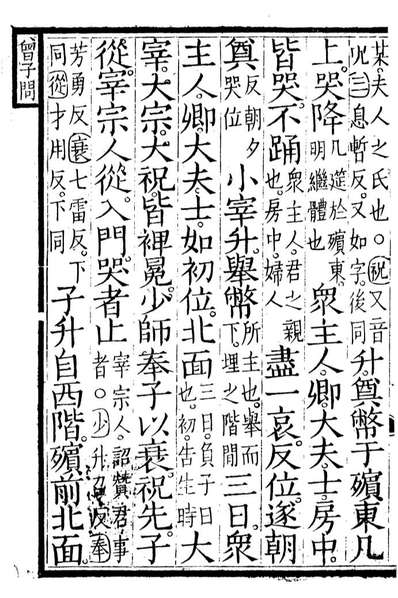 某。夫人之氏也。○祝又音呪。三息暫反。又如字。後同升。奠幣于殯東几
上。哭降。几筵於殯東。明繼體也眾主人。卿。大夫。士。房中。
皆哭。不踊。眾主人。君之親也。房中。婦人盡一哀。反位。遂朝
奠。反朝夕哭位小宰升。舉幣。所主也。舉而下。埋之階間三日。眾
主人。卿。大夫。士。如初位。北面。三日。負子日也。初。告生時大
宰。大宗。大祝皆裨冕。少師奉子以衰。祝先。子
從。宰宗人從。入門。哭者止。宰宗人。詔贊君事者。○少升召反。奉
芳勇反。衰七雷反。下同。從才用反。下同子升自西階。殯前北面。
曾子問